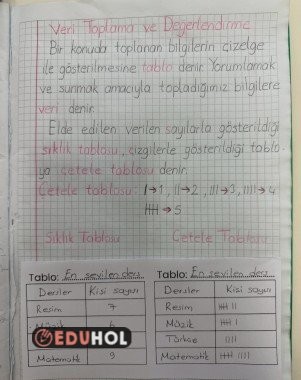 Veri Toplama ve Değerlendirme
Bir konuda toplanan bilgilerin çizelge
ile gösterilmesine tablo denir. Yorumlamak
ve sunmak amacıyla topladığımız bilgilere
veri denir.
Elde edilen verilen sayılarla gösterildiği
sıklık tablosu, çizgilerle gösterildiği tablo
ya çetele tablosu denir.
Çetele tablosu: I→1, II→2, III→3, IIII→4
𝍸→5
Sıklık Tablosu
Çetele Tablosu
Tablo: En sevilen ders
Dersler Kişi sayısı
Resim 7
Müzik
Matematik 9
Tablo: En sevilen ders
Dersler Kişi sayısı
Resim 𝍸 II
Müzik 𝍸 I
Türkçe IIII
Matematik 𝍸 IIII
EDUHOL